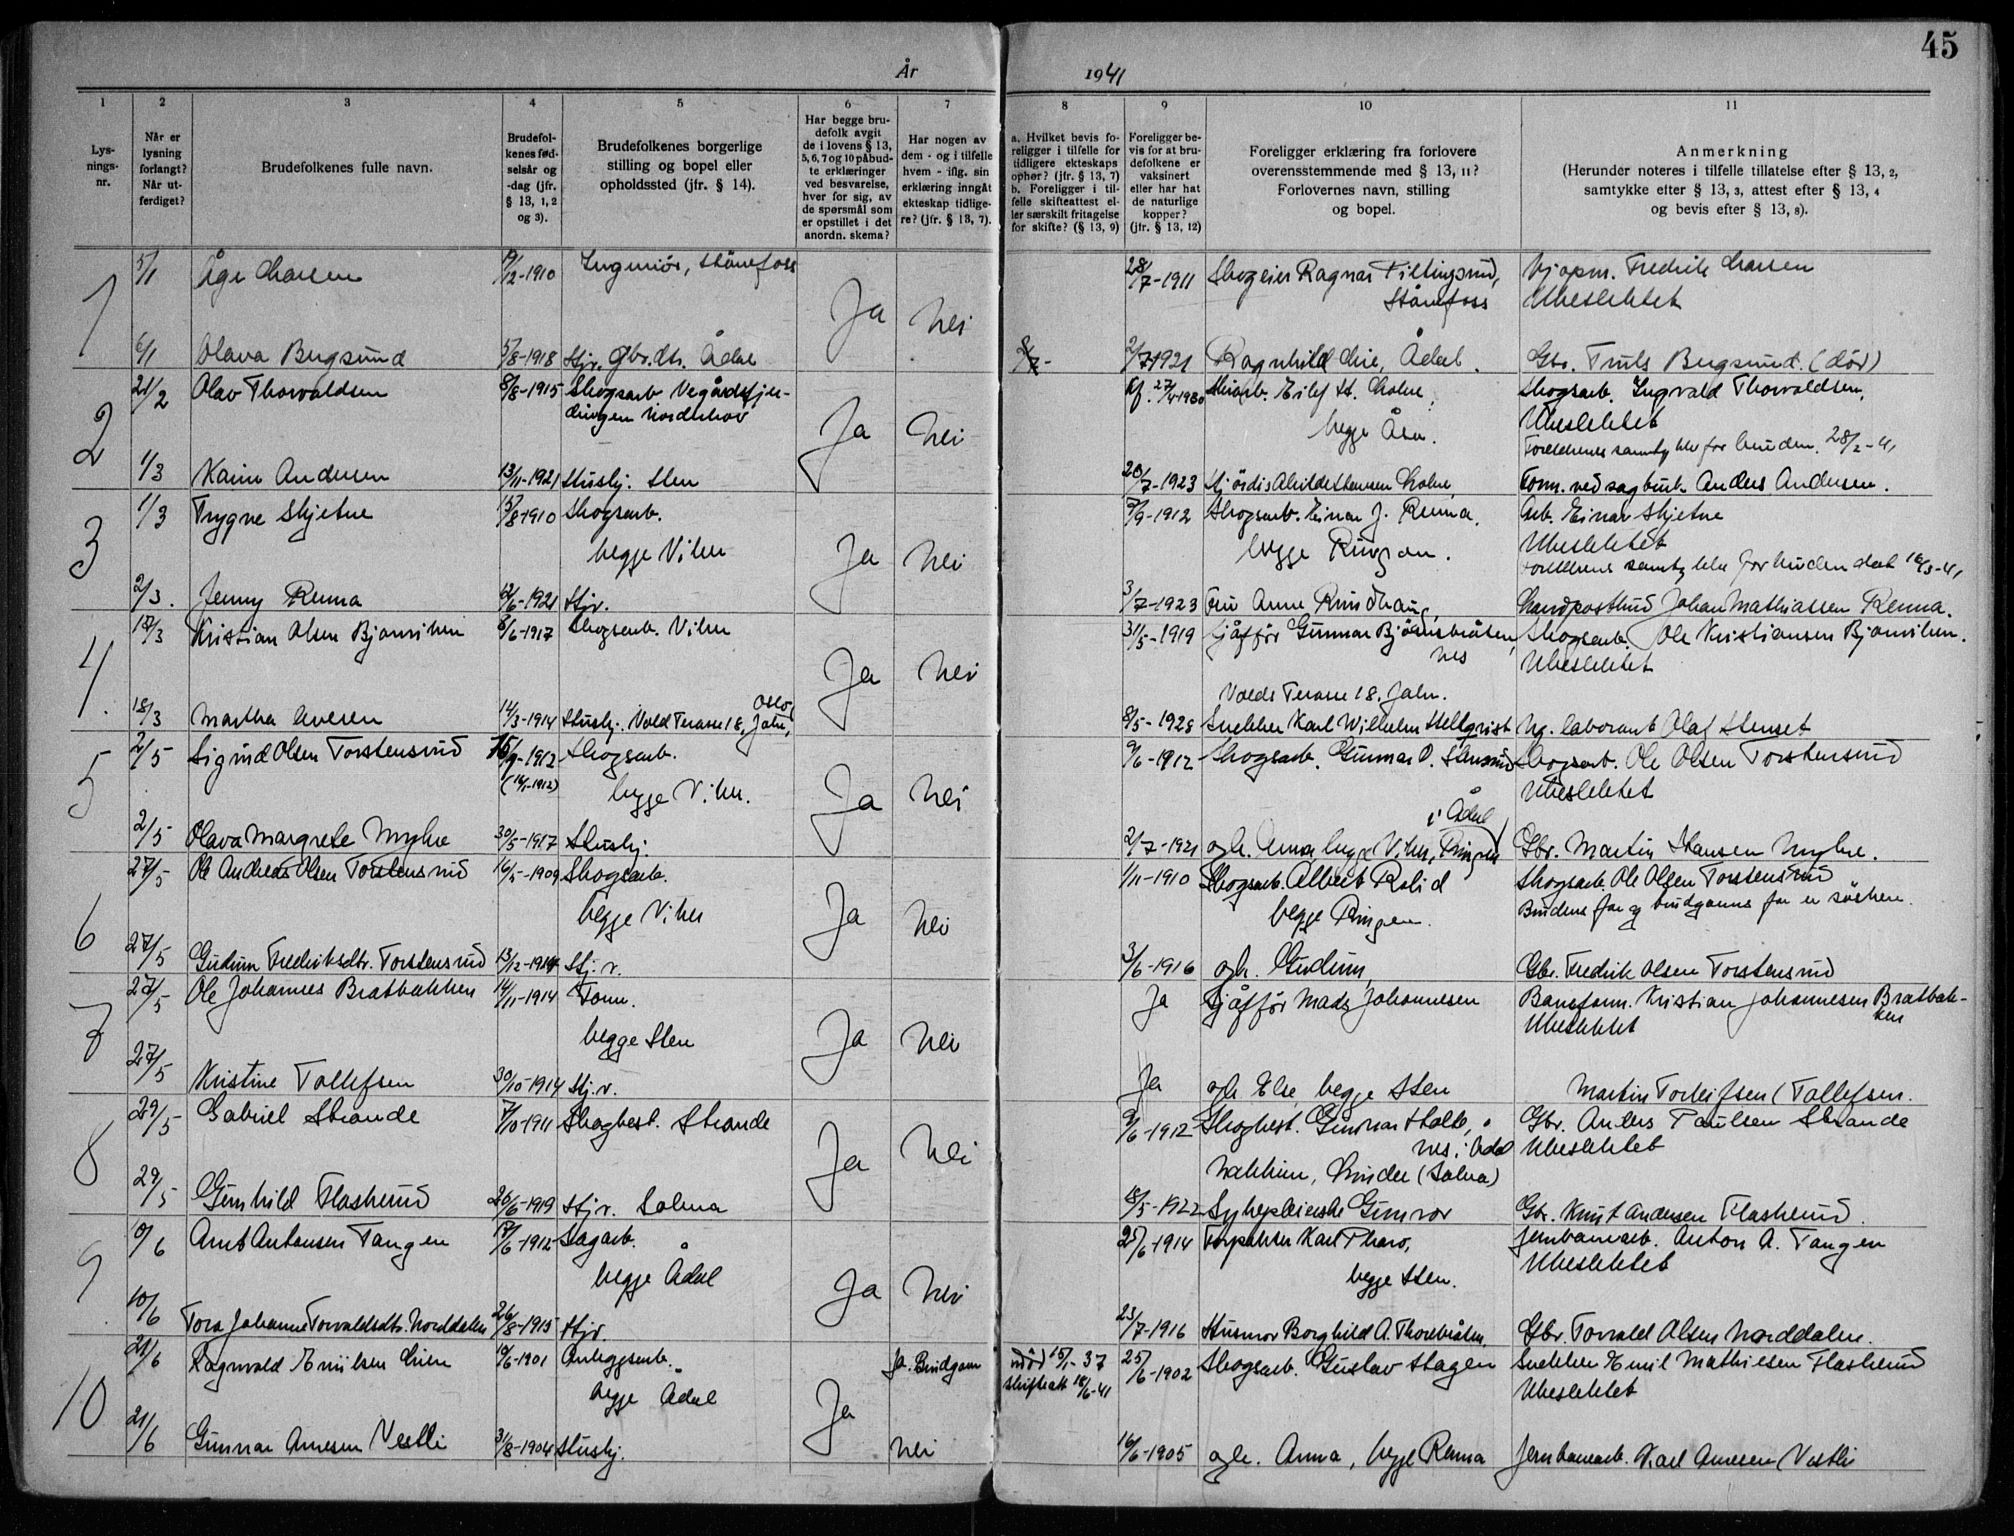 45
År 1941
1 2 3 4 5 6 7 8 9 10 11
Lys-
nings-
nr.
Når er
lysning
forlangt?
Når ut-
ferdiget?
Brudefolkenes fulle navn.
Brudefol-
kenes fød-
selsår og
-dag (jfr.
§ 13, 1, 2
og 3).
Brudefolkenes borgerlige
stilling og bopel eller
opholdssted (jfr. § 14).
Har begge bru-
defolk avgit
de i lovens § 13,
5, 6, 7 og 10 påbud-
te erklæringer
ved besvarelse,
hver for sig, av
de spørsmål som
er opstillet i det
anordn. skema?
Har nogen av
dem - og i tilfelle
hvem - iflg. sin
erklæring inngått
ekteskap tidlige-
re? (jfr. § 13, 7).
a. Hvilket bevis fo-
religger i tilfelle for
tidligere ekteskaps
ophør? (jfr. § 13, 7)
b. Foreligger i til-
felle skifteattest el-
ler særskilt fritagelse
for skifte? (§ 13, 9)
Foreligger be-
vis for at bru-
defolkene er
vaksinert
eller har hat
de naturlige
kopper?
(jfr. § 13, 12)
Foreligger erklæring fra forlovere
overensstemmende med § 13, 11?
Forlovernes navn, stilling
og bopel.
Anmerkning
(Herunder noteres i tilfelle tillatelse efter § 13, 2,
samtykke efter § 13, 3, attest efter § 13, 4
og bevis efter § 13, 8).
1 5/1 Åge Larsen 19/12-1910 Ingeniör, Hönefoss Ja Nei 28/7-1911 Skogeier Ragnar Tiltingsrud, Kjøpm. Fredrik Larsen
Hönefoss Ubeslektet
6/1 Olava Bergsund 5/8-1918 Hjv. Gbr.dtr. Ådal 2/7-1921 Ragnhild Lie, Ådal. Gbr. Truls Bergsund. (död)
2 21/2 Olav Thorvaldsen 8/8-1915 Skogsarb. Vegårdsfjer- Ja Nei 27/4-1930 Eilef H. Skogsarb. Ingvald Thorvaldsen,
dingen Norderhov begge Åsa. Ubeslektet
Foreldrenes samtykke for bruden. 28/2-41
1/3 Karin Andersen 13/11-1921 Hushj. Hen 20/7-1923 Hjördis Alvilde Hansen Form. ved sagbruk Anders Andersen.
3 1/3 Trygve Skjetne 15/8-1910 Skogsarb. Ja Nei 7/9-1912 Skogsarb. Einar J. Renna. Arb. Einar Skjetne
begge Viker begge Ringmoen. Ubeslektet
Foreldrenes samtykke for bruden dat 16/3-41
2/3. Jenny Renna 12/6-1921 Hjv. 3/7-1923 Fru Anne Rundhaug, Landpostbud Johan Mathiassen Renna.
4. 17/3 Kristian Olsen Bjønviken 8/6-1917 Skogsarb. Viker Ja Nei 31/5-1919 Sjåför Gunnar Bjönsbråten, Skogsarb. Ole Kristiansen Bjønviken.
Nes Ubeslektet
Oslo Volds Terasse 18, Jahr.
18/3 Martha Iversen 14/3-1914 Hushj. Vold Terasse 18, Jahr, 8/5-1928 Snekker Karl Wilhelm Hellqvist Ng. laborant Olaf Stenset
5 2/5 Sigurd Olsen Torstensrud 15/9-1912 Skogsarb. Ja Nei 9/6-1912 Skogsarb. Gunnar O. Skogsarb. Ole Olsen Torstensrud
(14/1-1912) begge Viker. Ubeslektet
i Ådal
2/5 Olava Margrete Myhre 30/5-1917 Hushj. 2/7-1921 og h. Anna begge Viker, Ringerike Gbr. Martin Hansen Myhre.
6 27/5 Ole Andreas Olsen Torstensrud 16/5-1909 Skogsarb. Ja Nei 1/11-1910 Skogsarb. Albert Rolid Skogsarb. Ole Olsen Torstensrud
begge Viker begge Ringen. Brudens far og brudgoms far er söskn.
27/5 Gudrun Fredriksdtr. Torstensrud 13/12-1914 Hj.v. 3/6-1916 og h. Gudrun, Gbr. Fredrik Olsen Torstensrud
7 27/5 Ole Johannes Bratbakken 14/11-1914 Form. Ja Nei Ja Sjåför Mads Johannesen Baneform. Kristian Johannesen Bratbak-
ken
begge Hen Ubeslektet
27/5 Kristine Tollefsen 30/10-1914 Hj.v. Ja og h Else, begge Hen Martin Torleifsen (Tollefsen.
8 29/5 Gabriel Strande 7/10-1911 Skogbest. Strande Ja Nei 9/6-1912 Skogbest. Gunnar Holte, Gbr. Anders Paulsen Strande
Nes i Ådal Ubeslektet
Nakkim, Lunder (Solna)
29/5 Gunhild Flaskerud 26/6-1919 Hj.v. Solna 18/5-1922 Sykepleierske Gunvor Gbr. Knut Andersen Flaskerud.
9. 10/6 Arnt Antonsen Tangen 17/6-1912 Sagarb. Ja Nei 25/6-1914 Karl Tharo, Jernbanearb. Anton A. Tangen
begge Ådal begge Hen. Ubeslektet
10/6 Tora Johanne Torvaldsdtr. Norddalen 26/8-1915 Hjv. 23/7-1916 Husmor Borghild A. Thorebråten, Gbr. Torvald Olsen Norddalen.
10 21/6 Ragnvald Emilsen Lien 19/6-1901 Anleggsarb. Ja Ja. Brudgom död 15/1-37 25/6-1902 Skogsarb. Gustav Hagen Snekker Emil Mathisen Flaskerud
skifteatt 18/6-41
begge Ådal Ubeslektet
21/6 Gunnar Arnesen Vestli 31/8-1904 Hushj. Nei 16/6-1905 og h. Anna, begge Renna Jernbanearb. Karl Arnesen Vestli